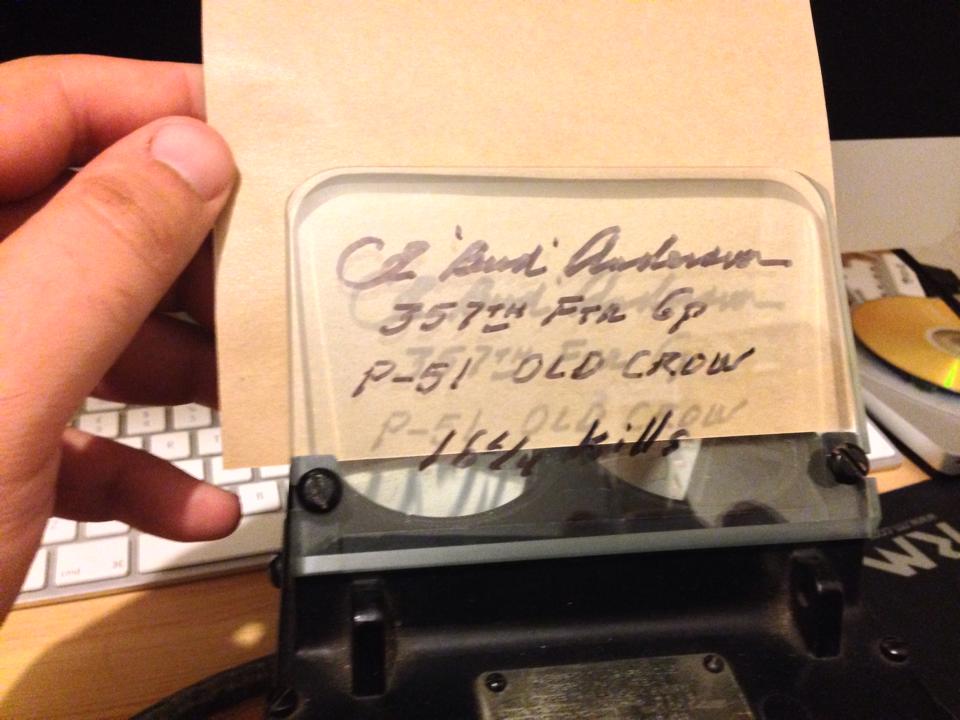 CE "Bud" Anderson
357TH FTR Gp
P-51 OLD CROW
16 1/4 kills
RM